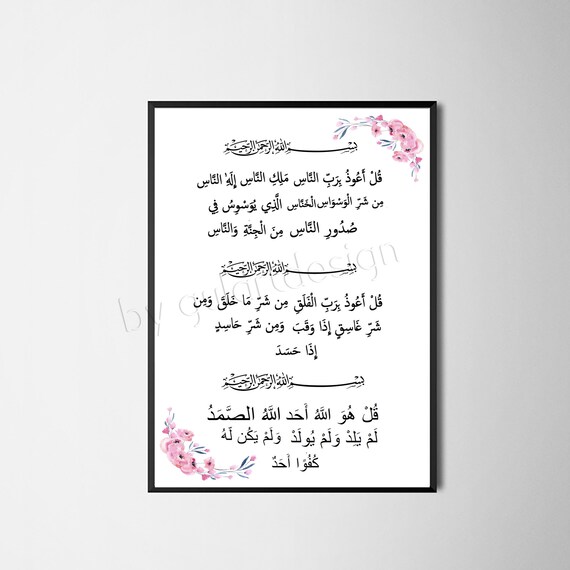 بِسْمِ اللهِ الرَّحْمَنِ الرَّحِيْمِ
قُلْ أَعُوذُ بِرَبِّ النَّاسِ مَلِكِ النَّاسِ إِلَهِ النَّاسِ
مِن شَرِّ الْوَسْوَاسِ الْخَنَّاسِ الَّذِي يُوَسْوِسُ فِي
صُدُورِ النَّاسِ مِنَ الْجِنَّةِ وَالنَّاسِ
بِسْمِ اللهِ الرَّحْمَنِ الرَّحِيْمِ
قُلْ أَعُوذُ بِرَبِّ الْفَلَقِ مِن شَرِّ مَا خَلَقَ وَمِن
شَرِّ غَاسِقٍ إِذَا وَقَبَ وَمِن شَرِّ حَاسِدٍ
إِذَا حَسَدَ
by gulartdesign
بِسْمِ اللهِ الرَّحْمَنِ الرَّحِيْمِ
قُلْ هُوَ اللَّهُ أَحَد اللَّهُ الصَّمَدُ
لَمْ يَلِدْ وَلَمْ يُولَدْ وَلَمْ يَكُن لَهُ
كُفُوًا أَحَدٌ